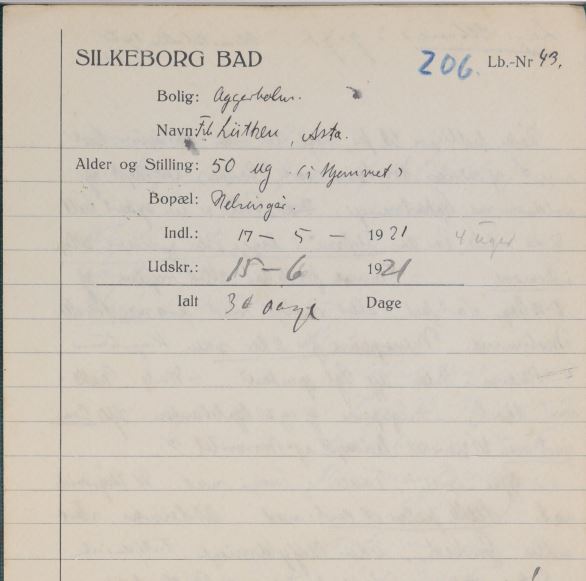 SILKEBORG BAD 206. Lb.-Nr 43.
Bolig: Aggerholm.
Navn: Frk Lüthen, Asta.
Alder og Stilling: 50 ug. (i Hjemmet)
Bopæl: Helsingør.
Indl.: 17 - 5 - 1921 4 uger
Udskr.: 15-6 1921
Ialt 30 dage Dage